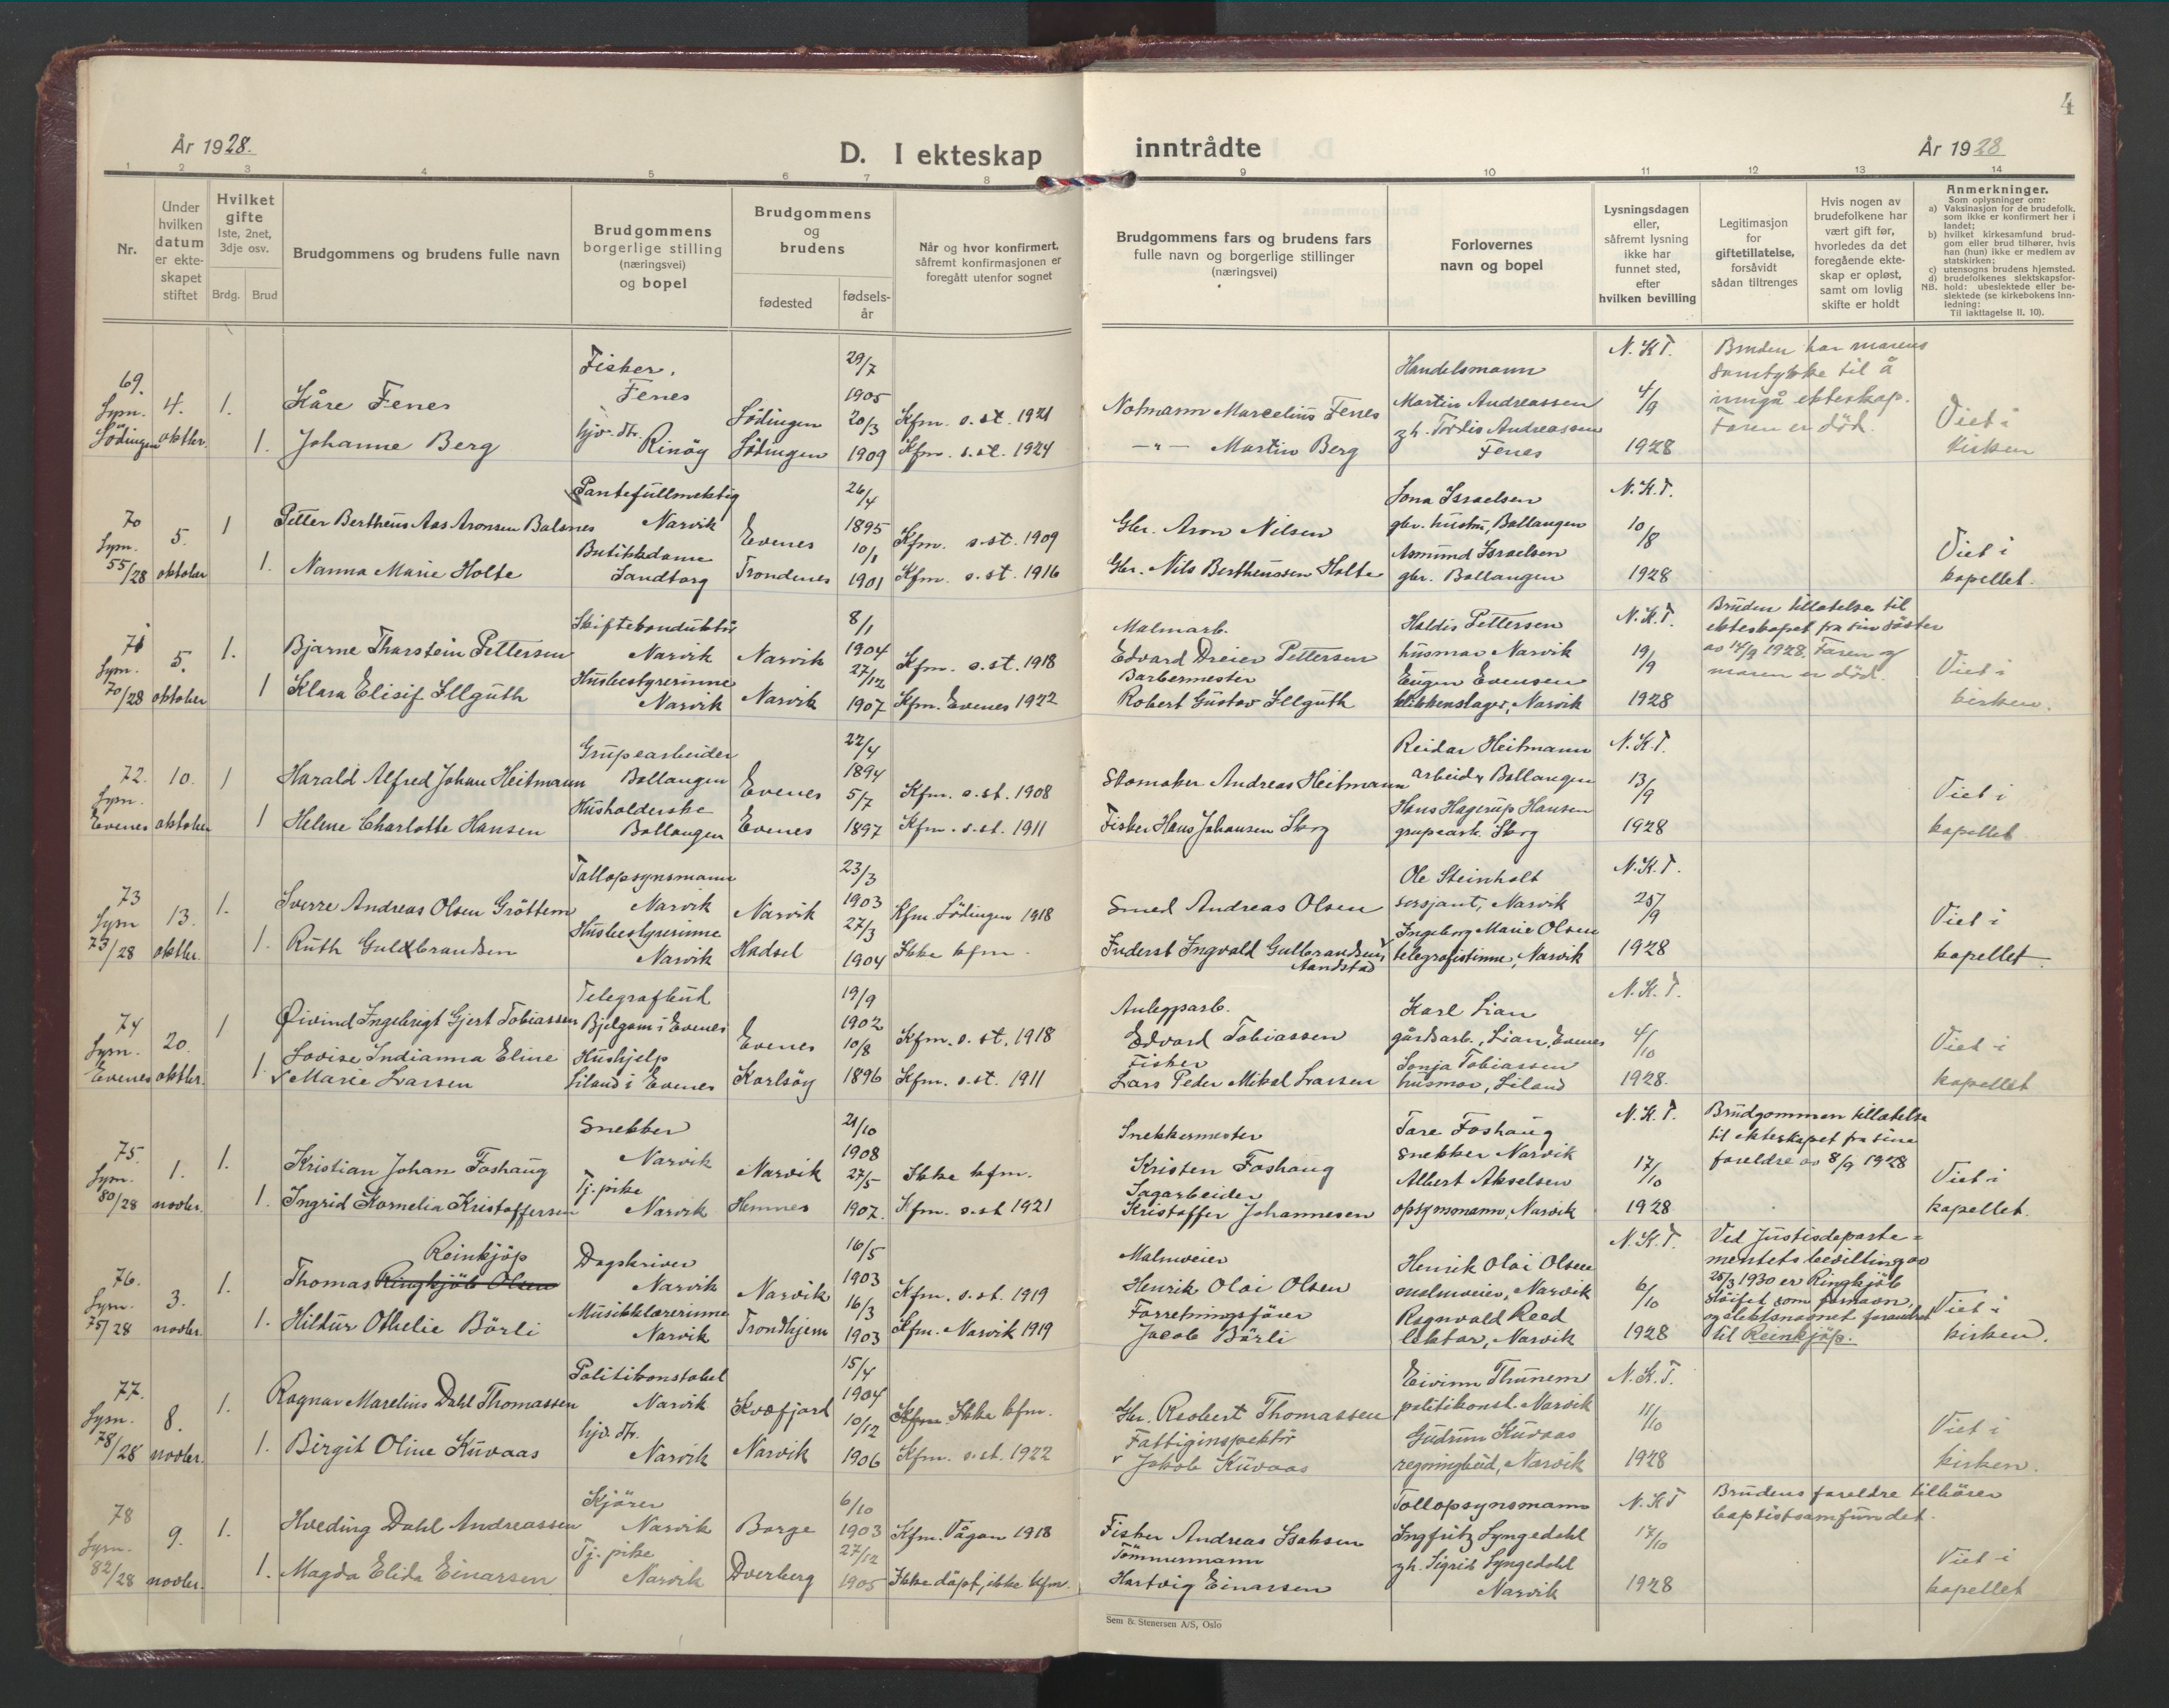 4
År 1928.
D. I ekteskap inntrådte
År 1928
1 2 3 4 5 6 7 8 9 10 11 12 13 14
Nr.
Under hvilken datum er ekte- skapet stiftet
Hvilket gifte
1ste, 2net, 3dje osv.
Brdg. Brud
Brudgommens og brudens fulle navn
Brudgommens borgerlige stilling (næringsvei) og bopel
Brudgommens og brudens
fødested
fødsels- år
Når og hvor konfirmert, såfremt konfirmasjonen er foregått utenfor sognet
Brudgommens fars og brudens fars fulle navn og borgerlige stillinger (næringsvei)
Forlovernes navn og bopel
Lysningsdagen eller, såfremt lysning ikke har funnet sted, efter hvilken bevilling
Legitimasjon for giftetillatelse, forsåvidt sådan tiltrenges
Hvis nogen av brudefolkene har vært gift før, hvorledes da det foregående ekte- skap er opløst, samt om lovlig skifte er holdt
Anmerkninger.
Som oplysninger om:
a) Vaksinasjon for de brudefolk, som ikke er konfirmert her i landet;
b) hvilket kirkesamfund brud- gom eller brud tilhører, hvis han (hun) ikke er medlem av statskirken;
c) utensogns brudens hjemsted.
d) brudefolkenes slektskapsfor- hold: ubeslektede eller be- slektede (se kirkebokens inn- ledning:
NB. Til iakttagelse II, 10).
69. Lysn. Lødingen
4. oktbr.
1. Kåre Fenes
1. Johanne Berg
Fisker, Fenes
hjv. dtr. Rinøy
Lødingen 29/7 1905
Lødingen 20/3 1909
Kfm. s. st. 1921
Kfm. s. st. 1924
Notmann Marcelius Fenes
— " — Martin Berg
Handelsmann Martin Andreassen
gh. Tordis Andreassen Fenes
N. K. T. 4/9 1928
Bruden har morens samtykke til å inngå ekteskap. Faren er död.
Viet i kirken
70 Lysn. 55/28
5. oktober
1 Petter Bertheus Aas Aronsen Balsnes
1. Nanna Marie Holte
Pantefullmektig Narvik
Butikkdame Sandtorg
Evenes 26/4 1895
Trondenes 10/1 1901
Kfm. s. st. 1909
Kfm. s. st. 1916
Gbr. Aron Nilsen
Gbr. Nils Bertheussen Holte
Jona Israelsen gbr. hustru, Ballangen
Asmund Israelsen gbr. Ballangen
N. K. T. 10/8 1928
Viet i kapellet.
71 Lysn. 70/28
5. oktober
1. Bjarne Tharstein Pettersen
1 Klara Elisif Illguth
Skiftekonduktör Narvik
Husbestyrerinne Narvik
Narvik 8/1 1904
Narvik 27/12 1907
Kfm. s. st. 1918
Kfm. Evenes 1922
Malmarb. Edvard Dreier Pettersen
Barbermester Robert Gustav Illguth
Haldis Pettersen husmor Narvik
Eugen Evensen blikkenslager, Narvik
N. K. T. 19/9 1928
Bruden tillatelse til ekteskapet fra sin söster av 14/9 1928. Faren og moren er död.
Viet i kirken.
72. Lysn. Evenes
10. oktober
1 Harald Alfred Johan Heitmann
1 Helene Charlotte Hansen
Grupearbeider Ballangen
Husholderske Ballangen
Evenes 22/4 1894
Evenes 5/7 1897
Kfm. s. st. 1908
Kfm. s. st. 1911
Skomaker Andreas Heitmann
Fisker Hans Johansen Skog
Reidar Heitmann arbeider Ballangen
Hans Hagerup Hansen grupearb. Skog
N. K. T. 13/9 1928
Viet i kapellet
73 Lysn 73/28
13. oktbr.
1. Sverre Andreas Olsen Gröttem
1. Ruth Gulbrandsen
Tollopsynsmann Narvik
Husbestyrerinne Narvik
Narvik 23/3 1903
Hadsel 27/3 1904
Kfm. Lödingen 1918
Ikke kfm.
Smed Andreas Olsen
Inderst Ingvald Gulbrandsen Aandstad
Ole Steinholt sersjant, Narvik
Ingeborg Marie Olsen telegrafistinne, Narvik
N. K. T. 25/9 1928
Viet i kapellet.
74 Lysn. Evenes
20. oktbr.
1 Øivind Ingebrigt Gjert Tobiassen
1. Lovise Indianna Eline Marie Larsen
Telegrafbud Bjelgam i Evenes
Hushjelp Liland i Evenes
Evenes 19/9 1902
Karlsöy 10/8 1896
Kfm. s. st. 1918
Kfm. s. st. 1911
Anleggsarb. Edvard Tobiassen
Fisker Lars Peder Mikal Larsen
Karl Lian gårdsarb., Lian, Evenes
Sonja Tobiassen husmor, Liland
N. K. T. 4/10 1928.
Viet i kapellet
75. Lysn. 80/28
1. novbr.
1. Kristian Johan Foshaug
1. Ingrid Kornelia Kristoffersen
Snekker Narvik
Tj. pike Narvik
Narvik 21/10 1908
Hemnes 27/5 1907.
Ikke kfm.
Kfm. s. st 1921
Snekkermester Kristen Foshaug
Sagarbeider Kristoffer Johannesen
Tore Foshaug snekker Narvik
Albert Akselsen opsynsmann, Narvik
N. K. T. 17/10 1928
Brudgommen tillatelse til ekteskapet fra sine foreldre av 8/9 1928
Viet i kapellet.
76. Lysn. 75/28
3. novbr.
1. Thomas Ringkjöb Olsen Reinkjöp
1. Hildur Othelie Börli
Dagskriver Narvik
Musikklærerinne Narvik
Narvik 16/5 1903
Trondhjem 16/3 1903
Kfm. s. st. 1919
Kfm. Narvik 1919
Malmveier Henrik Olai Olsen
Forretningsförer Jacob Börli
Henrik Olai Olsen malmveier, Narvik
Ragnvald Reed lektor, Narvik
N. K. T. 6/10 1928
Ved Justisdeparte= mentets bevilling av 25/3 1930 er Ringkjöb slöifet som fornavn, og slektsnavnet forandret til Reinkjöp.
Viet i kirken.
77. Lysn. 78/28
8. novbr.
1. Ragnar Marelius Dahl Thomassen
1. Birgit Oline Kuvaas
Politikonstabel Narvik
hjv. dtr. Narvik
Kvæfjord 15/4 1904
Narvik 10/12 1906
Kfm. Ikke kfm.
Kfm. s. st. 1922
Gbr. Robert Thomassen
Fattiginspektör Jakob Kuvaas
Eivinn Thunem politikonst. Narvik
Gudrun Kuvaas regningsbud, Narvik
N. K. T. 11/10 1928
Viet i kirken.
78 Lysn. 82/28
9. novbr.
1. Hveding Dahl Andreassen
1. Magda Elida Einarsen
Kjörer Narvik
Tj. pike Narvik
Borge 6/10 1903
Dverberg 27/12 1905
Kfm. Vågan 1918
Ikke döpt, ikke kfm.
Fisker Andreas Isaksen
Tömmermann Hartvig Einarsen
Tollopsynsmann Ingfritz Lyngedahl
gh. Sigrid Lyngedahl Narvik
N. K T 17/10 1928
Brudens foreldre tilhörer baptistsamfundet.
Viet i kapellet
Sem & Stenersen A/S, Oslo